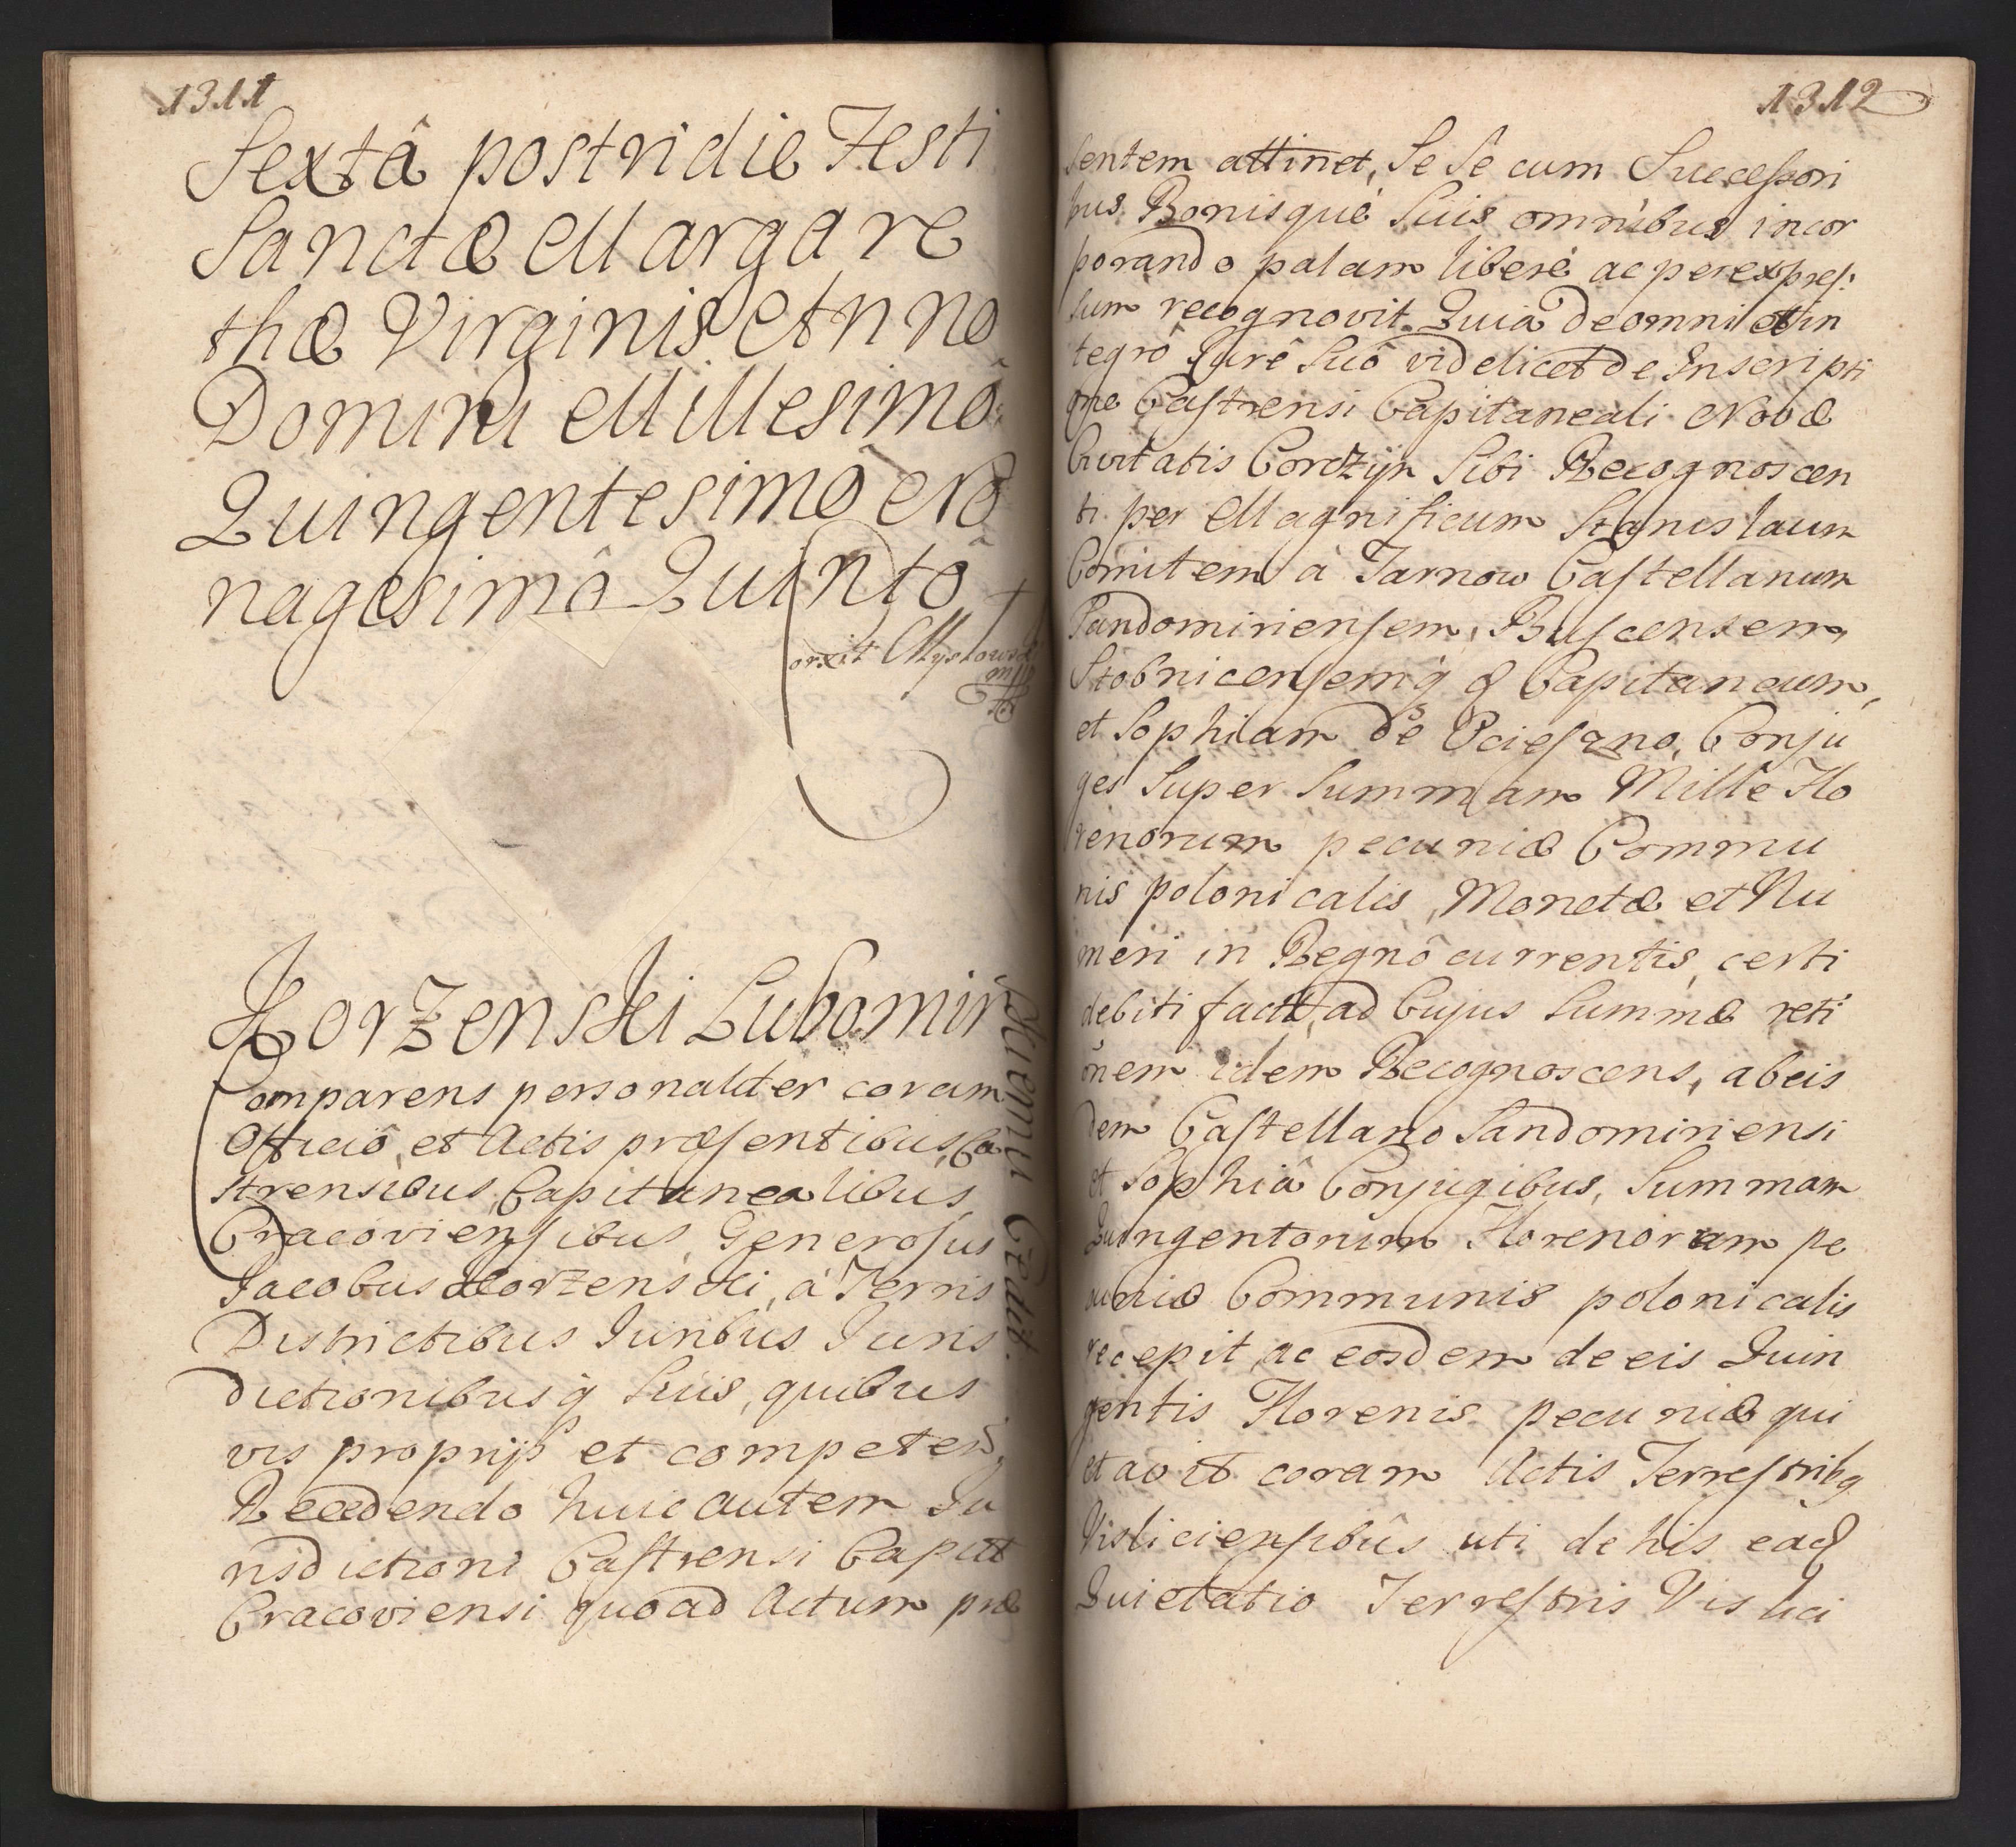 1311
Sextâ postridie Festi
Sanctæ Margare
thæ Virginis Anno
Domini Millesimô
Quingentesimô No
nagesimô Quintô
orxit
Korzenski Lubomir
skiemu Cedit.
Comparens personaliter coram
Officiô, et Actis præsentibus, Ca
strensibus, Capitanealibus,
Cracoviensibus, Generosus
Jacobus Korzenski, à Terris
Districtibus Juribus Juris
dictionibusq̃ Suis, quibus
vis proprijs et competen,
Recedendo huic autem Ju
risdictioni Castrensi Capitt
Cracoviensi quoad Actum præ
1312
sentem attinet, Se Se cum Successori
bus Bonisquè Suis omnibus incor
porando palam liberè ac per expres:
sum recognovit. Quia de omni et in
tegrô Jurê Suô videlicet de Inscripti
one Castrensi Capitaneali Novæ
Civitatis Corczÿn Sibi Recognoscen
ti per Magnificum Stanislaum
Comitem à Tarnow Castellanum
Sandomiriensem, Buscensem,
Stobnicensemq̃ & Capitaneum,
et Sophiam de Ocieszno, Conju
ges Super Summam Mille Flo
renorum pecuniæ Commu
nis polonicalis, Monetæ et Nu
meri in Regnô currentis, certi
debiti factâ, ad Cujus Summæ reti
õnem idem Recognoscens, ab eis
dem Castellano Sandomiriensi
et Sophiâ Conjugibus, Summam
Quingentorum Florenorum pe
cuniæ Communis polonicalis
recepit, ac eosdem de eis Quin
gentis Florenis pecuniæ qui
etavit coram Actis Terrestribq
Visliciensibus uti de his ead
Quietatio Terrestris Vislici